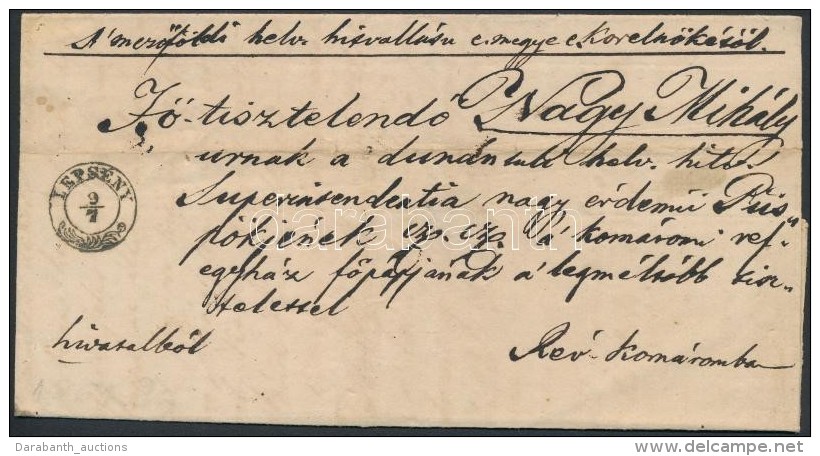 A' mezőföldi helv. hitvallásu e. megye e. Korelnökésöl.
Fő-tisztelendő Nagy Mihály
urnak a dunántuli helv. hitv.
Superintendentia nagy érdemü Püs„
pökjének sz. sz. 'a komáromi ref„
egyház főpapjának a legmélyebb tisz„
telettel
LEPSÉNY
9/7
hivatalból
Rév-Komáromba
darabanth
Darabanth_auctions